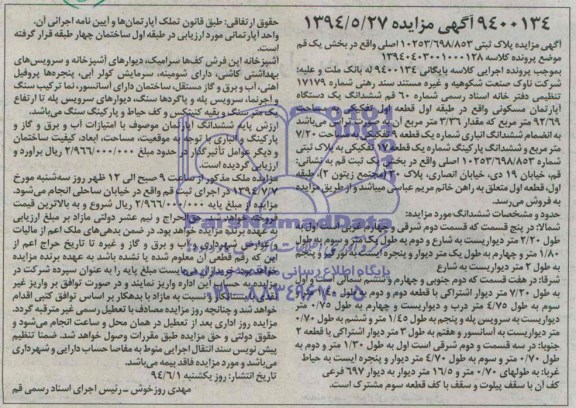 ۹۴۰۰۱۳۴ آگهی مزایده ۱۳۹۴/۵/۲۷
آگهی مزایده پلاک ثبتی ۱۰۲۵۳/۶۹۸/۸۵۳ اصلی واقع در بخش یک قم
موضع پرونده کلاسه ۱۳۹۴۰۴۰۳۰۰۱۰۰۰۱۲۸
بموجب پرونده اجرایی کلاسه بایگانی ۹۴۰۰۱۳۴ له بانک ملت و علیه:
شرکت ناوک صنعت شکوهیه و غیره مستند سند رهنی شماره ۱۷۱۷۹
تنظیمی دفتر خانه اسناد رسمی شماره ۶۰ قم ششدانگ یک دستگاه
آپارتمان مسکونی واقع در طبقه اول قطعه اول تفکیکی به مساحت
۹۲/۶۹ متر مربع که مقدار ۳/۳۶ متر مربع آن
به انضمام ششدانگ انباری شماره یک قطعه ۹ به مساحت ۷/۲۰
متر مربع و ششدانگ پارکینگ شماره یک قطعه تفکیکی به پلاک ثبتی
شماره ۱۰۲۵۳/۶۹۸/۸۵۳ اصلی واقع در بخش یک ثبت قم به نشانی:
قم، خیابان ۱۹ دی، خیابان انصاری، پلاک مجتمع زیتون ۲، طبقه
اول، قطعه اول متعلق به راهن خانم مریم عباسی میباشد و از طریق مزایده
به فروش می‌رسد.
حدود و مشخصات ششدانگ مورد مزایده:
شمالا: در پنج قسمت که قسمت دوم شرقی و چهارم غربی است اول به
طول ۲/۲۰ متر دیواریست به شارع و دوم به طول یک متر و سوم به طول
۱/۸۰ متر و چهارم به طول یک متر دیوار و پنجره ایست به نورگیر و پنجم
به طول ۲ متر دیواریست به شارع
شرقا: در هفت قسمت که دوم جنوبی و چهارم و ششم شمالی است اول
به طول ۷/۲۰ متر دیوار اشتراکی با قطعه دوم و دوم به طول
سوم به طول ۴/۷۵ متر درب و دیواریست و چهارم به طول ۰/۷۵ متر
دیواریست به سرویس پله و پنجم به طول ۱/۴۵ متر و ششم به طول ۰/۷۰
متر دیواریست به آسانسور و هفتم به طول ۳ متر دیوار اشتراکی با قطعه ۲
جنوبا: در سه قسمت و دوم شرقی است اول به طول ۱/۳۰ متر و دوم به
طول ۰/۷۰ متر و سوم به طول ۴/۷۰ متر دیوار و پنجره ایست به حیاط
غربا: به طولهای ۰/۷۰ متر و ۱۶/۵ متر دیوار به دیوار ۶۹۷ فرعی
کف آن با سقف پیلوت و سقف با کف قطعه سوم مشترک است.
حقوق ارتفاقی: طبق قانون تملک آپارتمان‌ها و آیین نامه اجرایی آن.
واحد آپارتمانی مورد ارزیابی در طبقه اول ساختمان چهار طبقه قرار گرفته
است.
آشپزخانه این فرش کف‌ها سرامیک، دیوارهای آشپزخانه و سرویس‌های
بهداشتی کاشی، دارای شومینه، سرمایش کولر آبی، پنجره‌ها پروفیل
آهنی، آب و برق و گاز مستقل، ساختمان دارای آسانسور، نما ترکیب سنگ
و آجرنما، سرویس پله و پاگردها سنگ، دیوارهای سرویس پله تا ارتفاع
یک متر سنگ و بقیه کنیتکس و کف حیاط و پارکینگ سنگ می‌باشد.
ارزش پایه ششدانگ آپارتمان موصوف با امتیازات آب و برق و گاز و
پارکینگ و انباری با توجه به موقعیت، مساحت، ابعاد، کیفیت ساختمان
و دیگر عوامل تأثیرگذار در حدود مبلغ ۲/۹۶۶/۰۰۰/۰۰۰ ریال برآورد و
ارزیابی گردیده است.
مزایده ملک مذکور از ساعت ۹ صبح الی ۱۲ ظهر روز سه‌شنبه مورخ
۱۳۹۴/۷/۷ در اجرای ثبت قم واقع در خیابان ساحلی انجام می‌شود.
مزایده از مبلغ پایه ۲/۹۶۶/۰۰۰/۰۰۰ ریال شروع و به بالاترین قیمت
فروخته خواهد شد. حق حراج و نیم عشر دولتی مازاد بر مبلغ ارزیابی
به عهده برنده مزایده خواهد بود. در ضمن بدهی‌های ملک اعم از مالیات
و عوارض شهرداری و آب و برق و گاز و غیره تا تاریخ حراج اعم از
این که رقم قطعی آن معلوم شده یا نشده باشد به عهده برنده مزایده
خواهد بود. خریداران می‌بایست مبلغ پایه را به عنوان سپرده شرکت در
مزایده به حساب این اداره واریز نمایند و در صورت توافق بر واریز غیر
نقدی بستانکار و نسبت به مازاد با بدهکار بر اساس توافق کتبی اقدام
خواهد شد و چنانچه روز مزایده مصادف با تعطیل رسمی غیر مترقبه گردد.
مزایده روز اداری بعد از تعطیل در همان محل و ساعت انجام می‌شود و
حقوق دولتی و حق مزایده طبق مقررات وصول خواهد شد. ضمنا تنظیم
پیش نویس سند انتقال اجرایی منوط به مفاصا حساب دارایی و شهرداری
می‌باشد و مورد مزایده فاقد بیمه می‌باشد.
تاریخ انتشار: روز یکشنبه ۹۴/۶/۱
مهدی روزخوش - رئیس اجرای اسناد رسمی قم
ParsNamadData
پایگاه اطلاع رسانی
۰۲۱-۸۸۳۴۹۶۷۰-۵